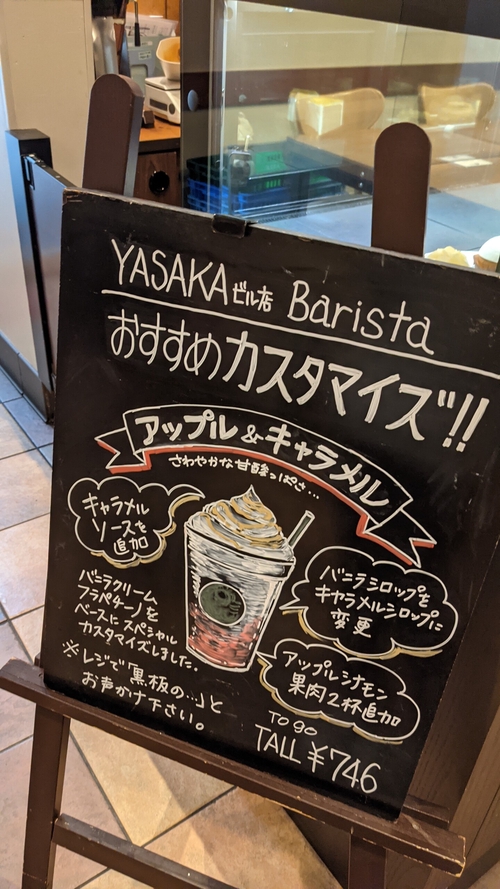 YASAKAビル店 Barista
おすすめカスタマイズ!!
アップル&キャラメル
さわやかな甘酸っぱさ…
キャラメル
ソースを
追加
バニラクリーム
フラペチーノを
ベースに スペシャル
カスタマイズしました。
※レジで「黒板の…」と
お声かけ下さい。
バニラシロップを
キャラメルシロップに
変更
アップルシナモン
果肉2杯追加
TO go
TALL ¥746